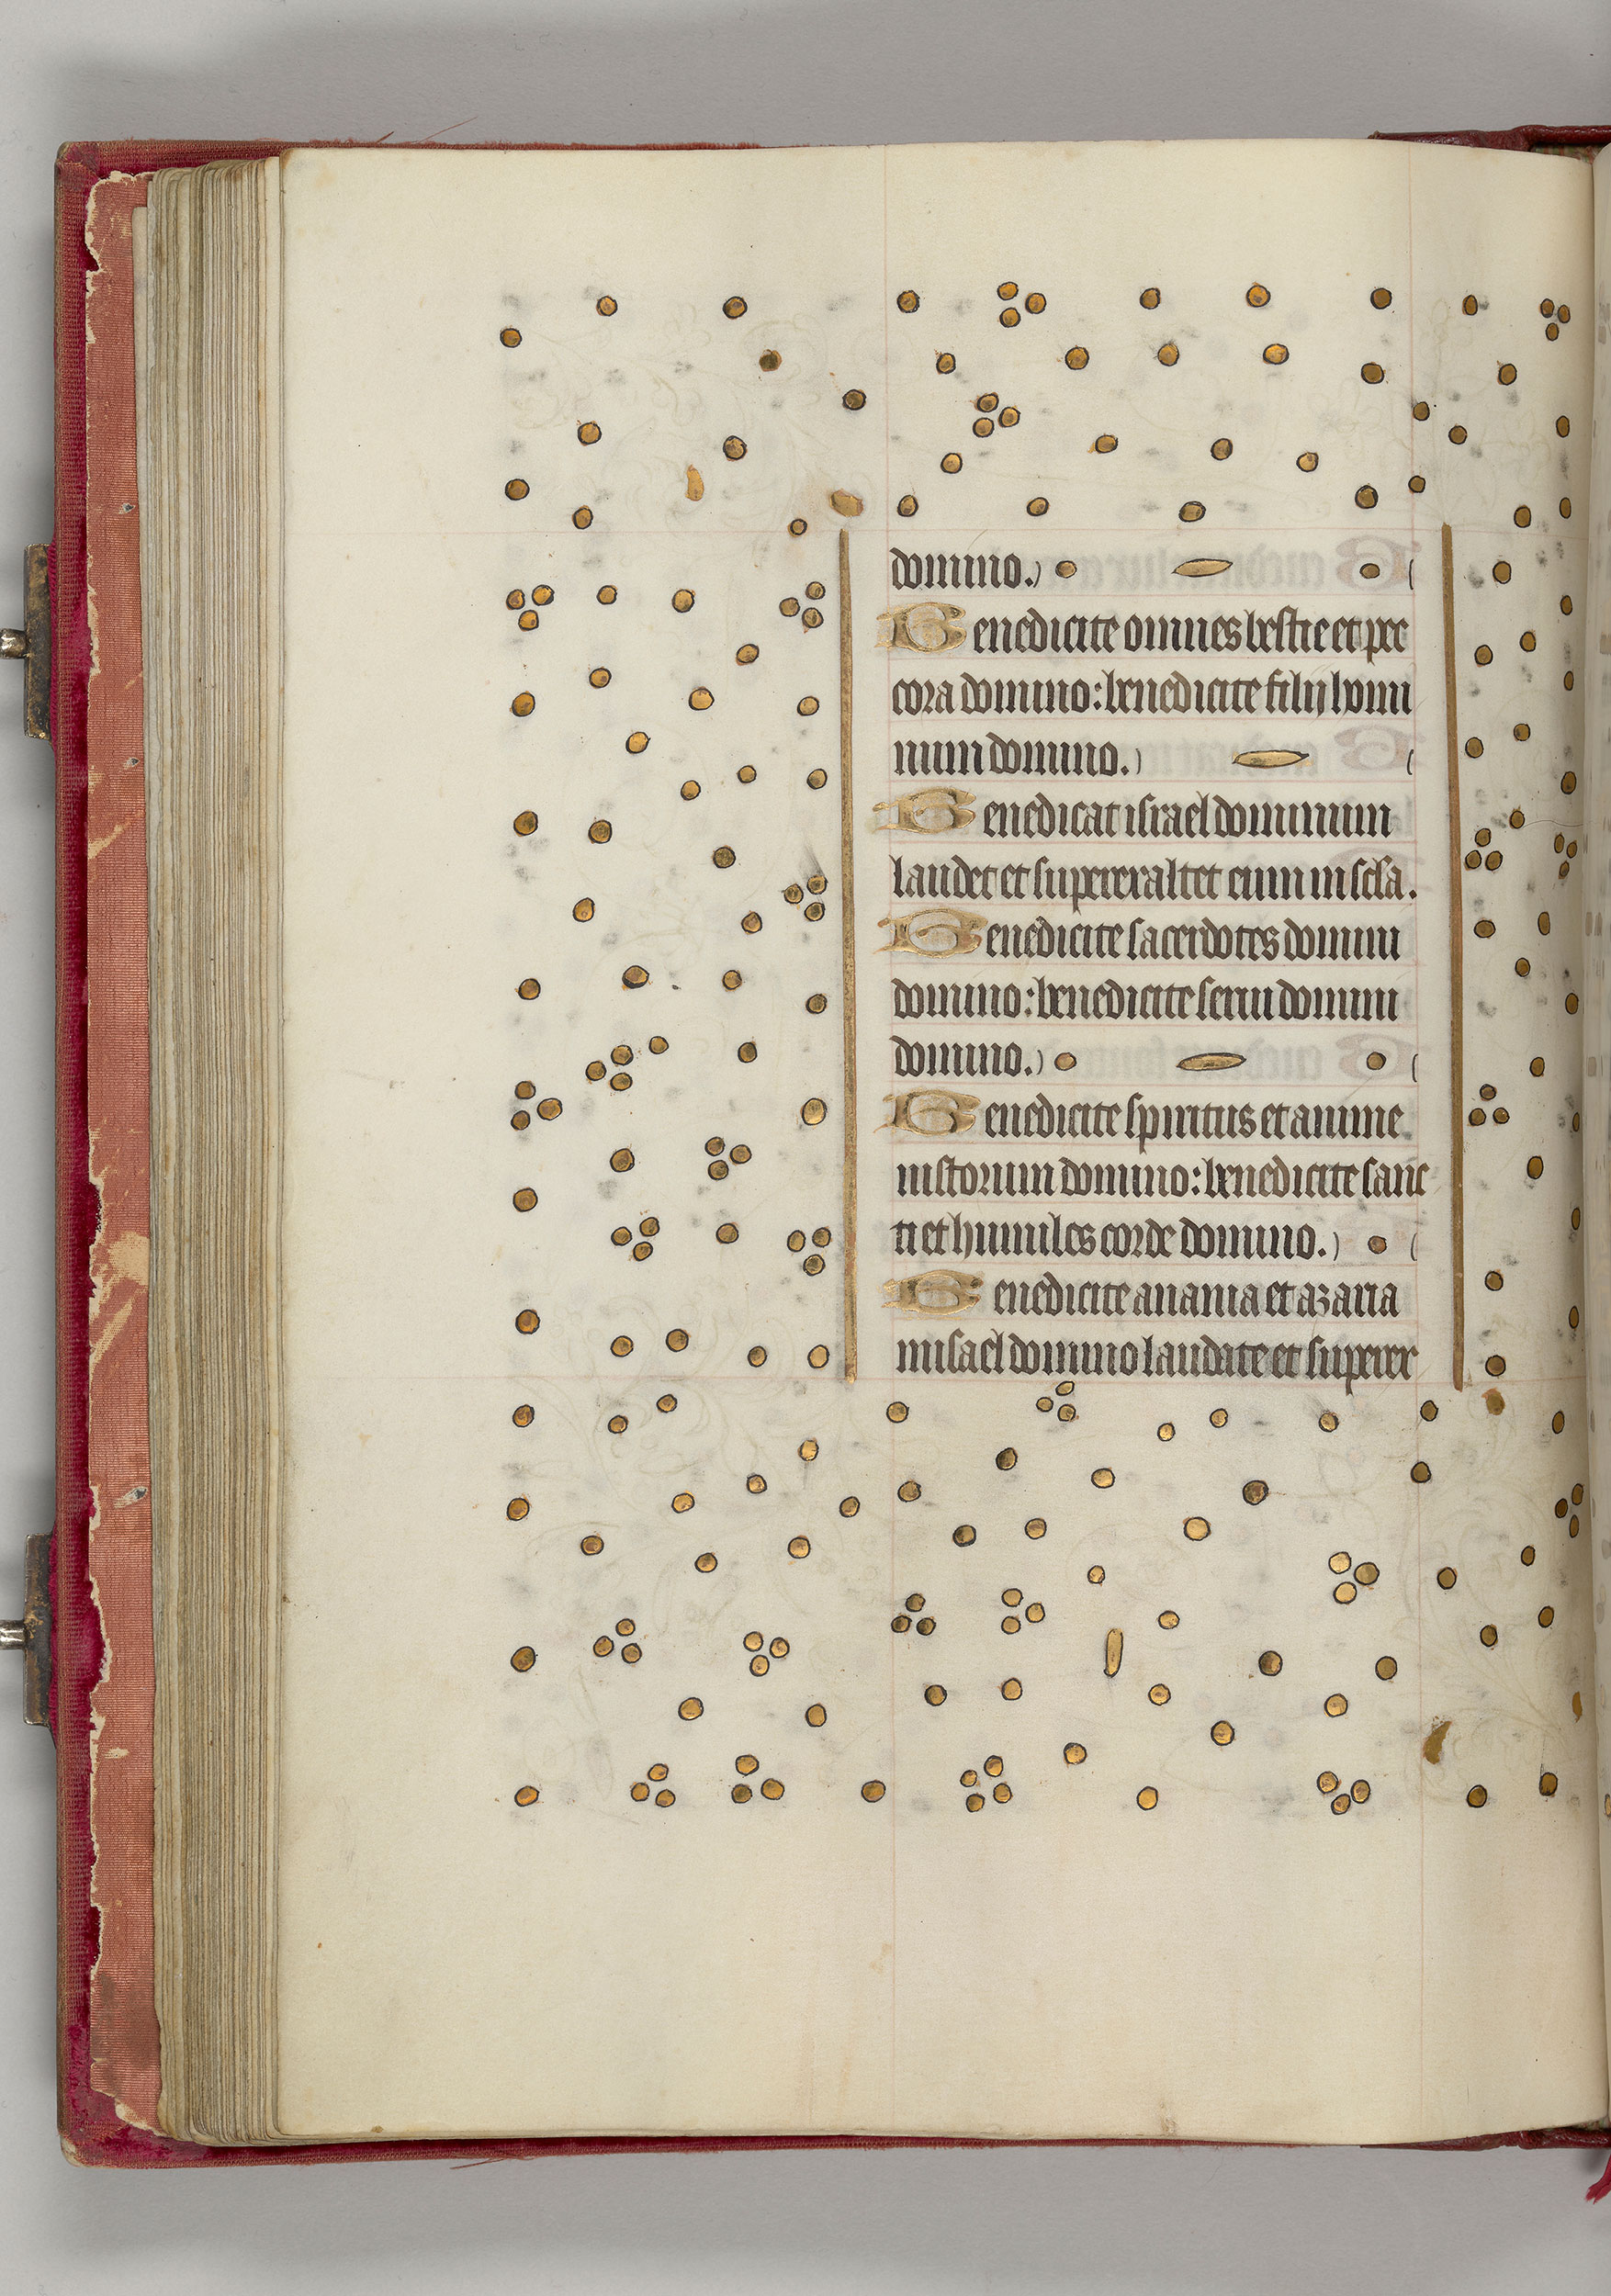 domino.
Benedicite omnes bestie et pec
cora domino: benedicite filij homi
num domino.
Benedicat israel dominum
laudet et superexaltet eum in scła.
Benedicite sacerdotes domini
domino: benedicite serui domini
domino.
Benedicite spiritus et anime
iustorum domino: benedicite sanc
ti et humiles corde domino.
Benedicite anania et azaria
misael domino laudate et superex